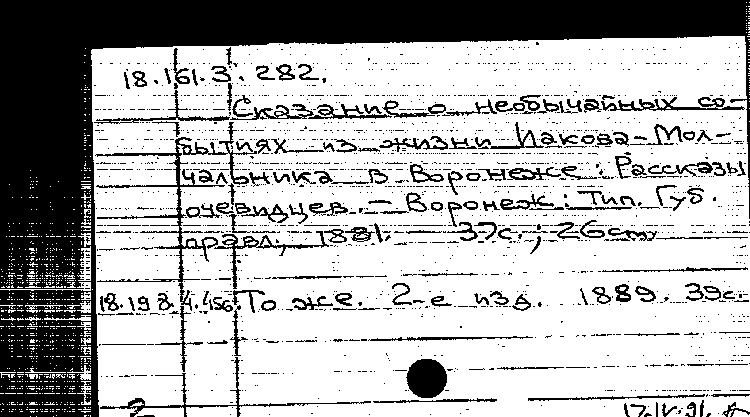 18.161.3.282.
Сказание о необычайных со-
бытиях из жизни Иакова-Мол-
чальника в Воронеже: Рассказы
очевидцев. – Воронеж: Тип. Губ.
правл., 1881. – 37с.; 26cm.
18.198.4.456. То же. 2-е изд. 1889. 39с.